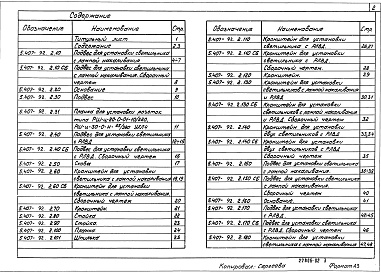 2
Содержание
Обозначение Наименование Стр
Титульный лист 1
Содержание 2,3
5.407-92.2.10 Подвес для установки светильника
с лампой накаливания 4-7
5.407-92.2.10 СБ Подвес для установки светильника
с лампой накаливания. Сборочный
чертеж 8
5.407-92.2.20 Основание 9
5.407-92.2.30 Подвес 10
5.407-92.2.31
11
5.407-92.2.40 Подвес для установки светильника
с РЛВД
5.407-92.2.40 СБ Подвес для установки светильника
с РЛВД. Сборочный чертеж
5.407-92.2.50
5.407-92.2.60 Кронштейн для установки
светильника с лампой накаливания
5.407-92.2.60 СБ Кронштейн для установки
светильника с лампой накаливания
Сборочный чертеж 20
5.407-92.2.70 Кронштейн 21
5.407-92.2.80 Стойка 22
5.407-92.2.90 Стойка 23
5.407-92.2.100 24
5.407-92.2.101 Шпилька 25
Обозначение Наименование Стр.
5.407-92.2.110 Кронштейн для установки
светильника с РЛВД
5.407-92.2.110 СБ Кронштейн для установки
светильника с РЛВД.
Сборочный чертеж 28
5.407-92.2.120 Кронштейн 29
5.407-92.2.130 Кронштейн для установки
светильника с лампой накаливания
и РЛВД 30,31
5.407-92.2.130 СБ Кронштейн для установки
светильника с лампой накаливания
и РЛВД. Сборочный чертеж 32
5.407-92.2.140 Кронштейн для установки
двух светильников с РЛВД 33,34
5.407-92.2.140 СБ Кронштейн для установки
двух светильников с РЛВД.
Сборочный чертеж 35
5.407-92.2.150 Подвес для установки светильника
с лампой накаливания.
5.407-92.2.150 СБ Подвес для установки светильника
с лампой накаливания.
Сборочный чертеж 40
5.407-92.2.160 Основание. 41
5.407-92.2.170 Подвес для установки светильника
с РЛВД.
5.407-92.2.170 СБ Подвес для установки светильника
с РЛВД. Сборочный чертеж 46
5.407-92.2.180 Кронштейн для установки
светильника с лампой накаливания 47,48
Копировал: Сергеева Формат А3